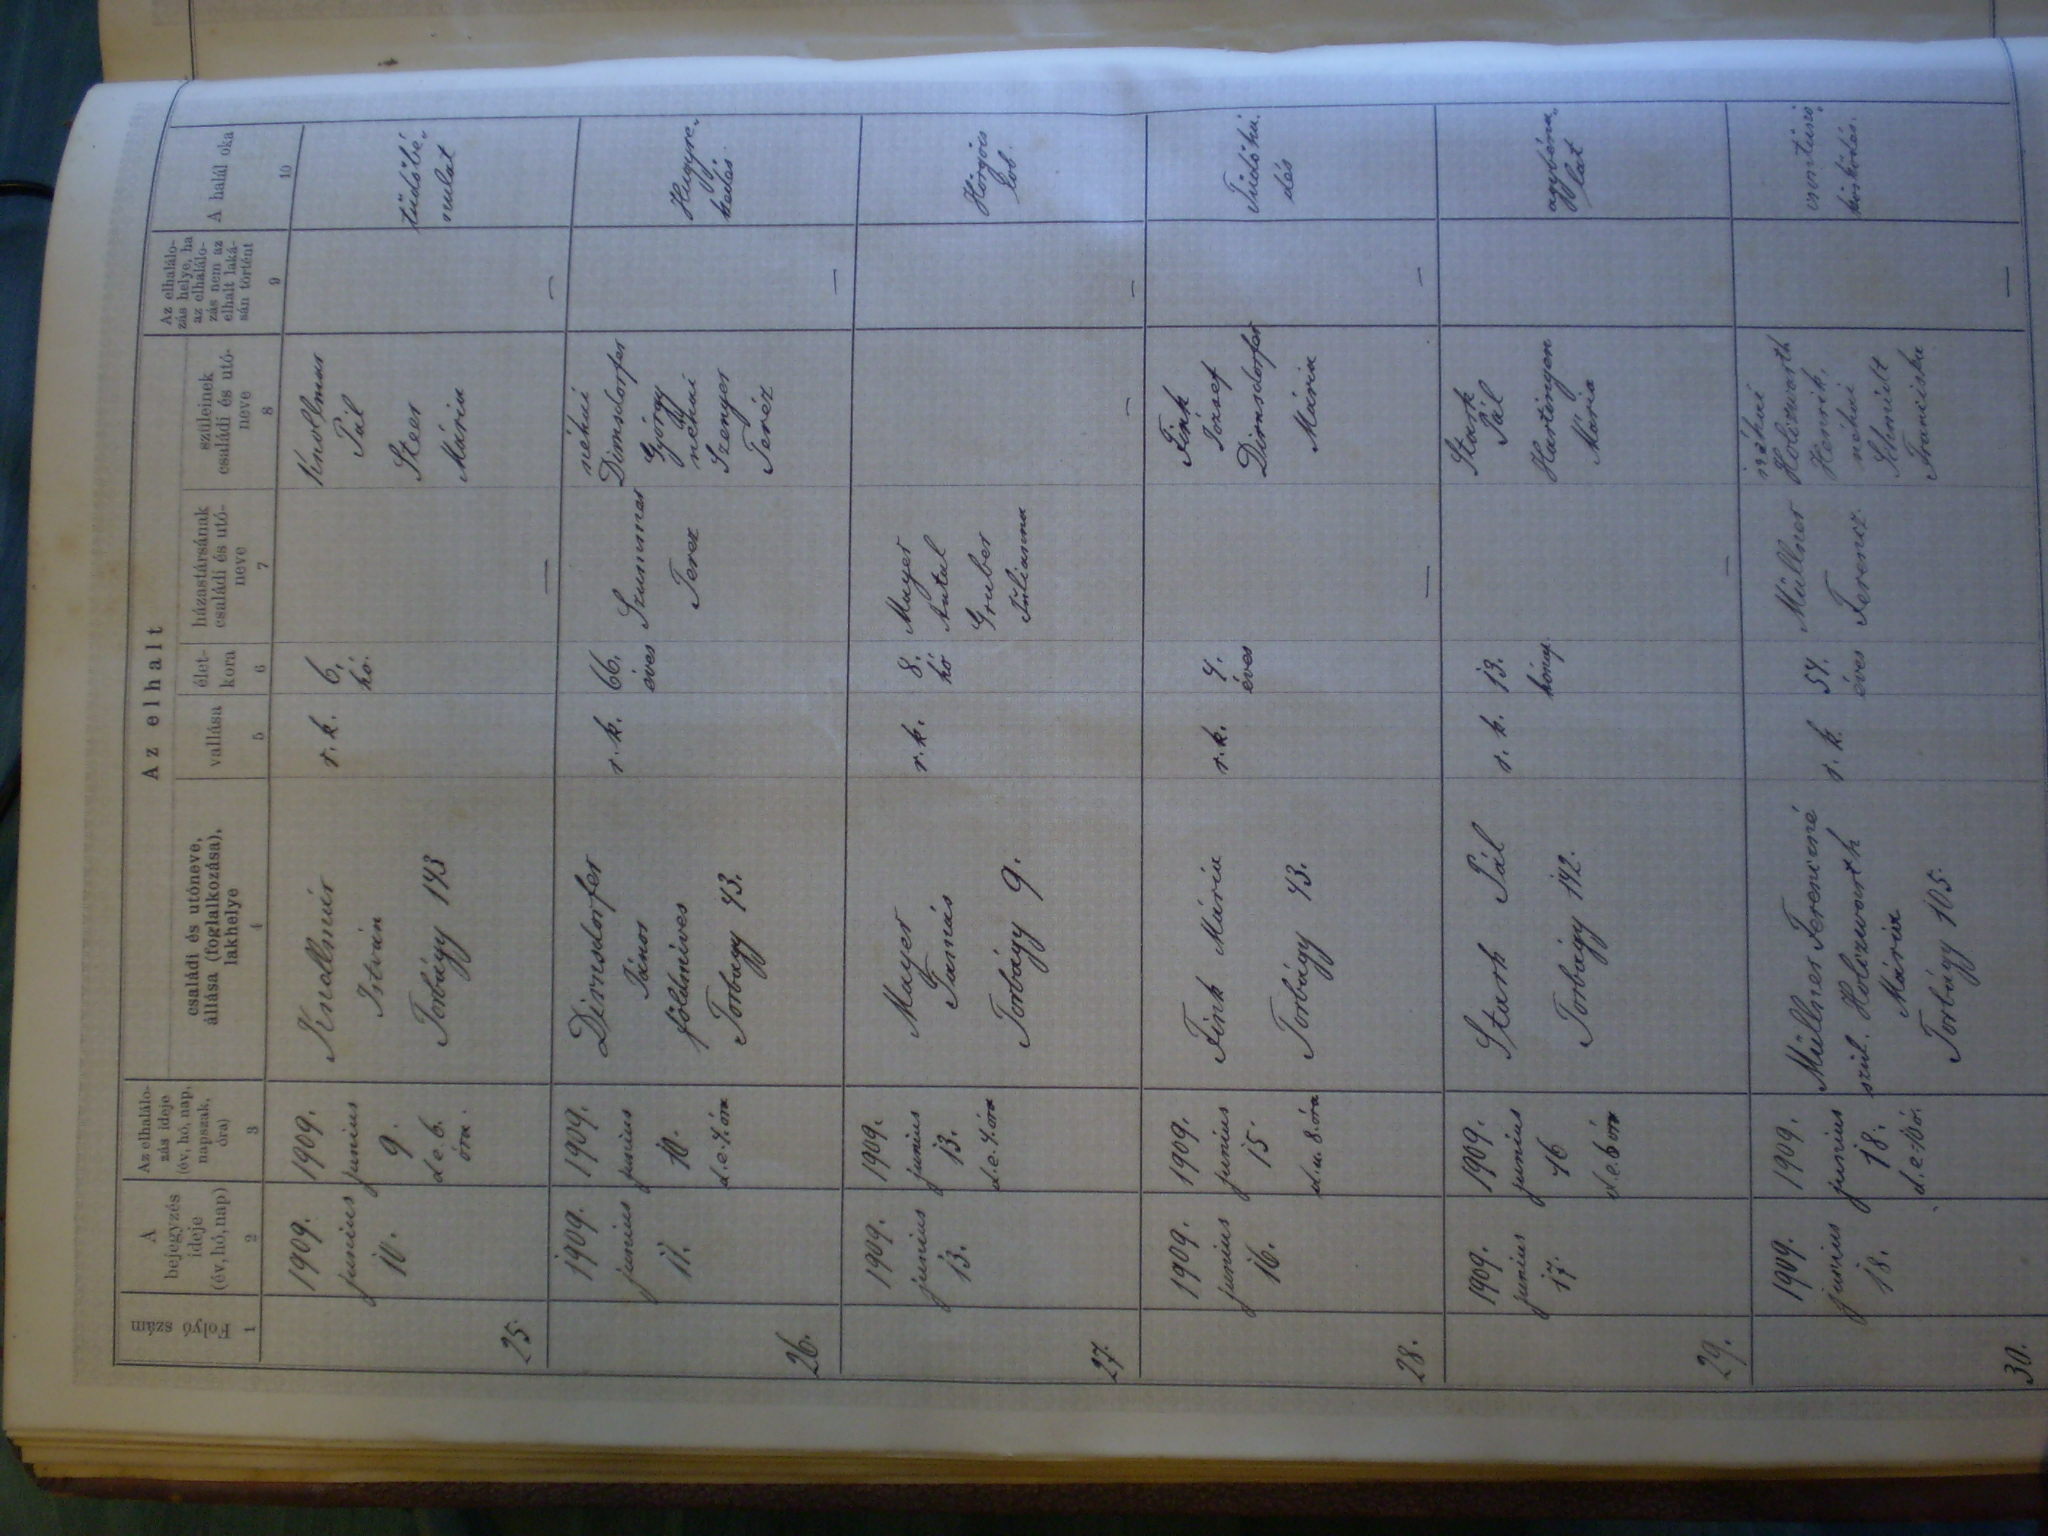 Az elhalt
Folyó szám
A bejegyzés ideje (év, hó, nap)
Az elhalálo-
zás ideje
(év, hó, nap,
napszak,
óra)
családi és utóneve,
állása (foglalkozása),
lakhelye
vallása
élet-
kora
házastársának
családi és utó-
neve
szüleinek
családi és utó-
neve
Az elhalálo-
zás helye, ha
az elhalálo-
zás nem az
elhalt laká-
sán történt
A halál oka
1 2 3 4 5 6 7 8 9 10
25.
1909.
junius
10.
1909.
junius
9.
d.e. 6.
óra.
István
Torbágy 143
r. k.
6.
hó.
—
Pál
Steer
Mária
—
tüdőbé-
nulat
26.
1909.
junius
11.
1909.
junius
10.
d.e. 4. óra
Dirnsdorfer
János
földmives
Torbágy 43.
r. k.
66.
éves
Szummer
Terez
néhai
Dirnsdorfer
György
néhai
Szenyer
Teréz
—
Hugyre-
kedés.
27.
1909.
junius
13.
1909.
junius
13.
d.e. 4. óra
Mayer
Tamás
Torbágy 9.
r. k.
8.
hó
Mayer
Antal
Gruber
Julianna
—
—
Hörgös
lob.
28.
1909.
junius
16.
1909.
junius
15.
d.u. 8. óra
Fink Mária
Torbágy 43.
r. k.
4.
éves
—
Fink
József
Dirnsdorfer
Mária
—
Tüdőhü-
dés
29.
1909.
junius
17.
1909.
junius
16
d.e. 6 óra
Stark Pál
Torbágy 142.
r. k.
13.
hónap.
—
Stark
Pál
Hartingen
Mária
agybéna-
lat
30.
1909.
junius
18.
1909.
junius
18.
d.e. 10 ó.
Müllner Ferencné
szül. Holczwarth
Mária
Torbágy 105.
r. k.
54.
éves
Müllner
Ferencz.
néhai
Holczwarth
Henrik,
néhai
Schmidt
Franciska
—